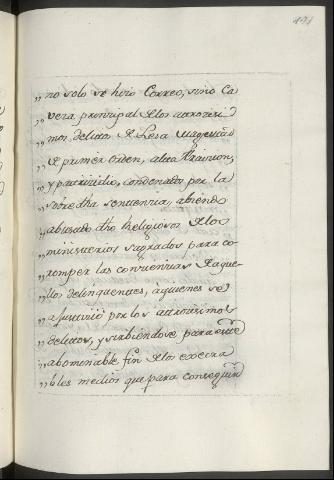 191
„ no solo se hizo Correo, sino Ca
„ vera principal de los atrocisi
„ mos delitos de Lesa Magestad
„ de primer orden, alta traicion,
„ y parricidio, condenados por la
„ sobre dha sentencia, abiendo
„ abusado dho Religiosos de los
„ ministerios sagrados para co
„ romper las conciencias de aque
„ llos delinquentes, aquienes se
„ ajusticiò por los atrocisimos
„ delitos, y sirbiendose para este
„ abominable fin de los execra
„ bles medios que para conseguir